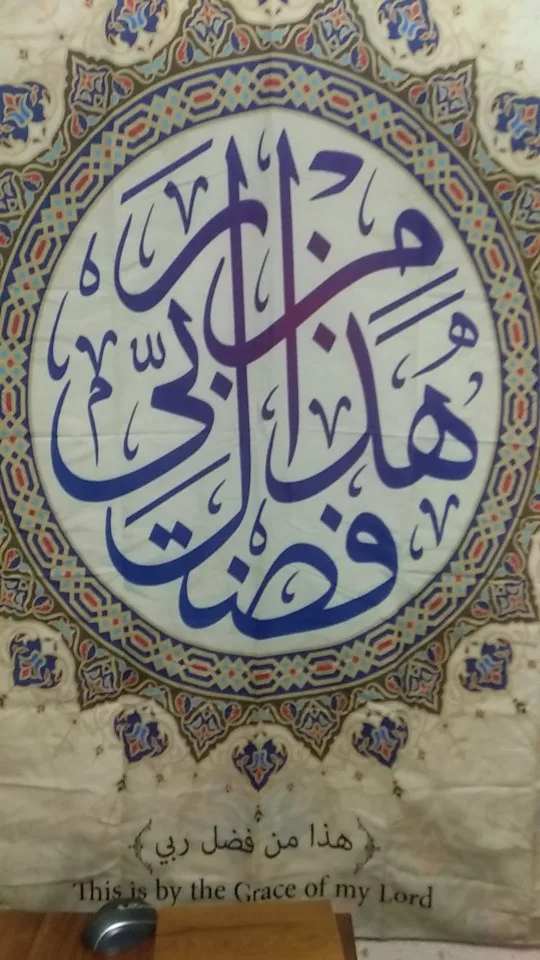 هذا من فضل ربي
﴿هذا من فضل ربي﴾
This is by the Grace of my Lord